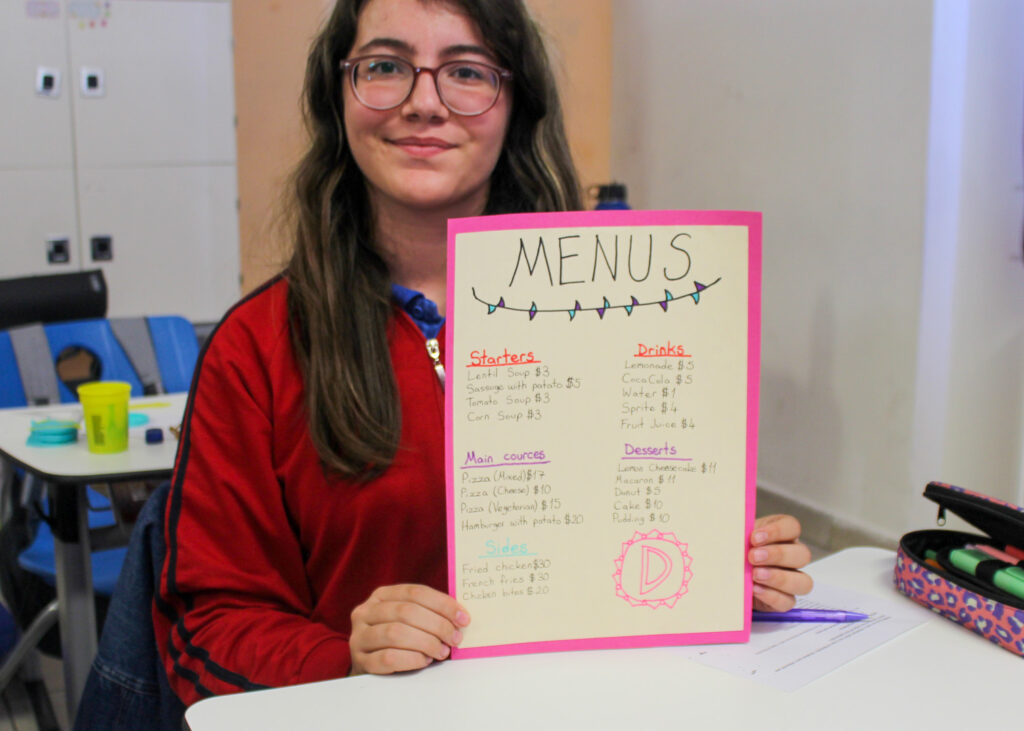 MENUS
Starters
Lentil Soup $3
Sassage with potato $5
Tomato Soup $3
Corn Soup $3
Main cources
Pizza (Mixed) $17
Pizza (Cheese) $10
Pizza (Vegeterian) $15
Hamburger with potato $20
Sides
Fried chicken $30
French fries $30
Chicken bites $20
Drinks
Lemonade $5
CocaCola $5
Water $1
Sprite $4
Fruit Juice $4
Desserts
Lemon Cheesecake $11
Macaron $11
Donut $5
Cake $10
Pudding $10
D